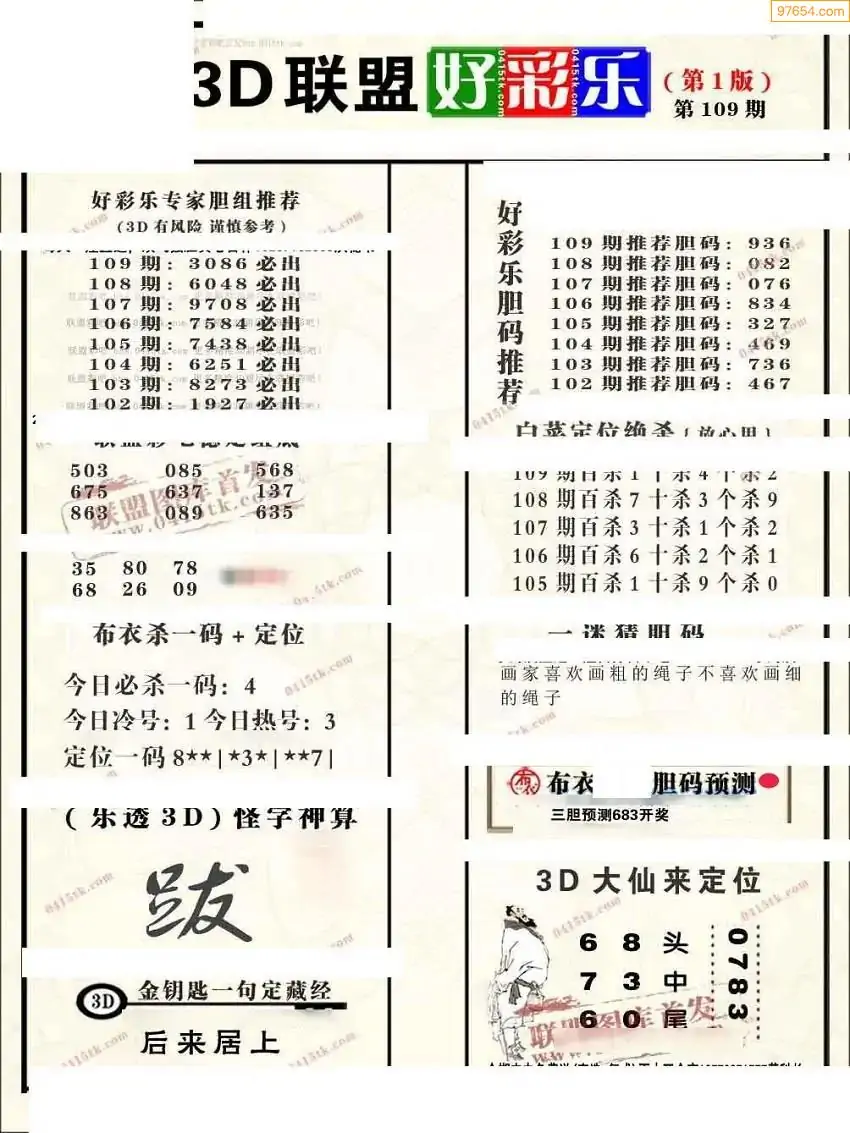 97654.com
3D联盟 好彩乐 (第1版)
第109期
好彩乐专家胆组推荐
(3D有风险 谨慎参考)
109期: 3086必出
108期: 6048必出
107期: 9708必出
106期: 7584必出
105期: 7438必出
104期: 6251必出
103期: 8273必出
102期: 1927必出
503 085 568
675 637 137
863 089 635
联盟图库首发
www.0415tk.com
35 80 78
68 26 09
布衣杀一码+定位
今日必杀一码: 4
今日冷号: 1 今日热号: 3
定位一码8**|*3*|**7|
(乐透3D)怪字神算
跋
3D 金钥匙一句定藏经
后来居上
好彩乐胆码推荐
109期推荐胆码: 936
108期推荐胆码: 082
107期推荐胆码: 076
106期推荐胆码: 834
105期推荐胆码: 327
104期推荐胆码: 469
103期推荐胆码: 736
102期推荐胆码: 467
白菜定位绝杀(放心用)
109期百杀1十杀4个杀2
108期百杀7十杀3个杀9
107期百杀3十杀1个杀2
106期百杀6十杀2个杀1
105期百杀1十杀9个杀0
一迷猜胆码
画家喜欢画粗的绳子不喜欢画细
的绳子
布衣 胆码预测
三胆预测683开奖
3D大仙来定位
6 8 头
7 3 中
6 0 尾
0783
联盟图库首发
0415tk.com